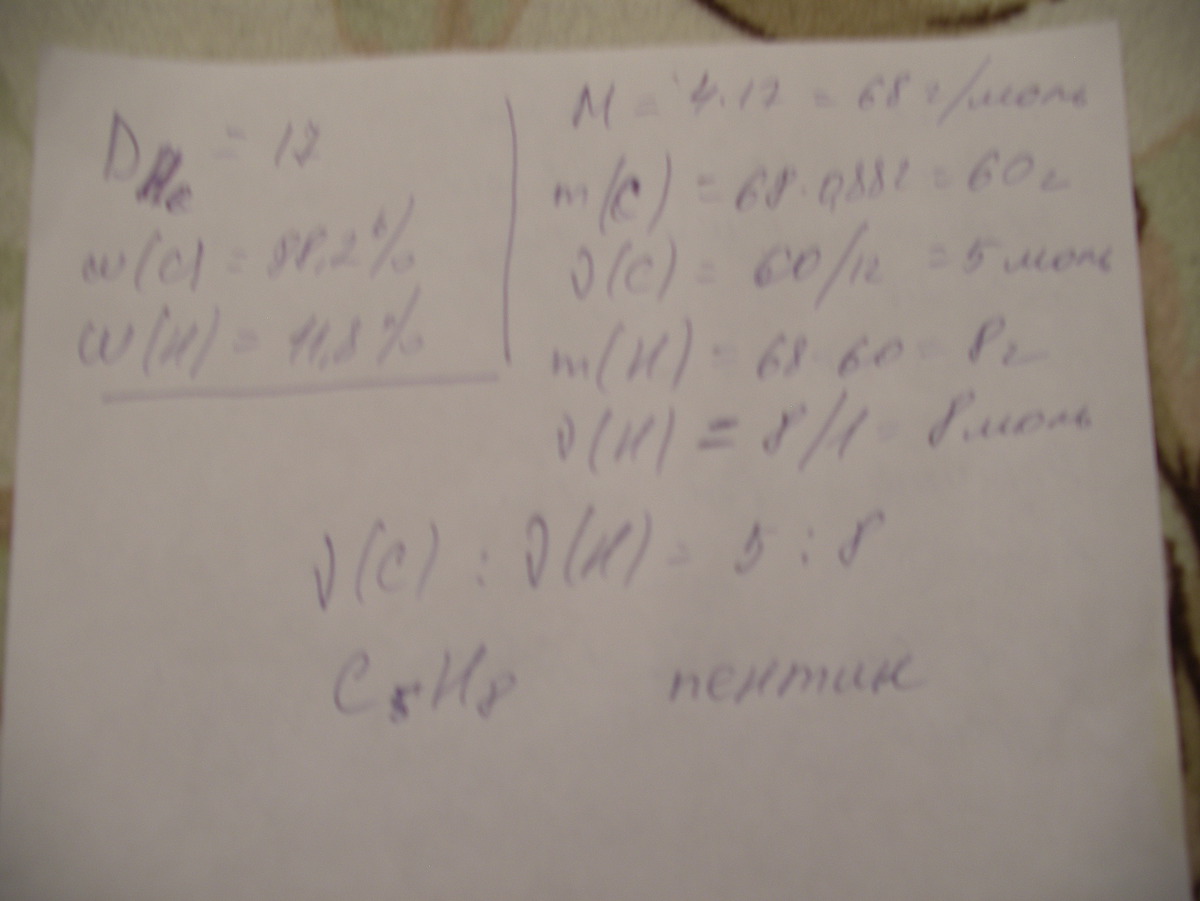 D He = 17
w(C) = 88,2%
w(H) = 11,8%
M = 4·17 = 68 г/моль
m(C) = 68·0,882 = 60 г
ν(C) = 60/12 = 5 моль
m(H) = 68-60 = 8 г
ν(H) = 8/1 = 8 моль
ν(C) : ν(H) = 5 : 8
C₅H₈ пентин